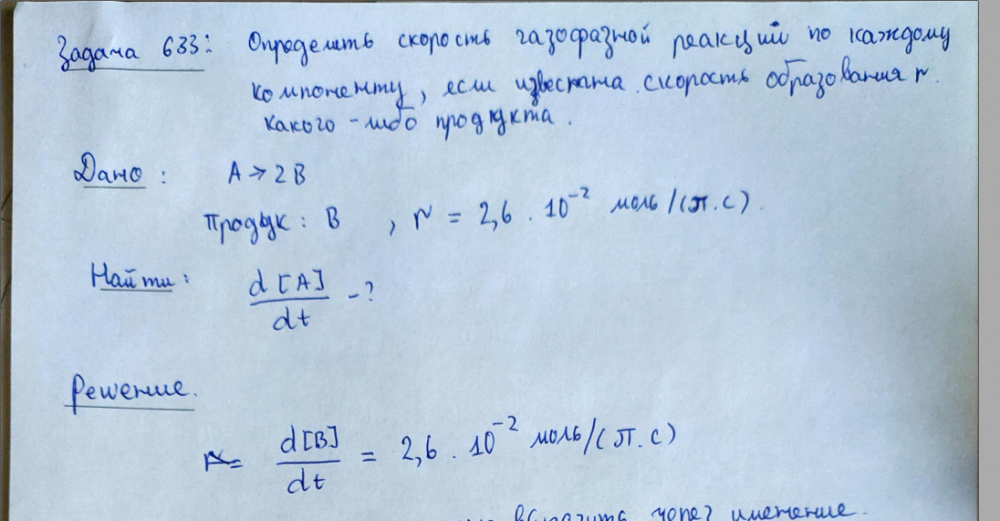 Задача 633: Определить скорость газофазной реакций по каждому
компоненту, если известна скорость образования r
какого-либо продукта.
Дано: A → 2B
Продук: B, r = 2,6 · 10⁻² моль/(л.с).
Найти: d[A]/dt - ?
Решение.
r= d[B]/dt = 2,6 · 10⁻² моль/(л.с)
выразить через изменение